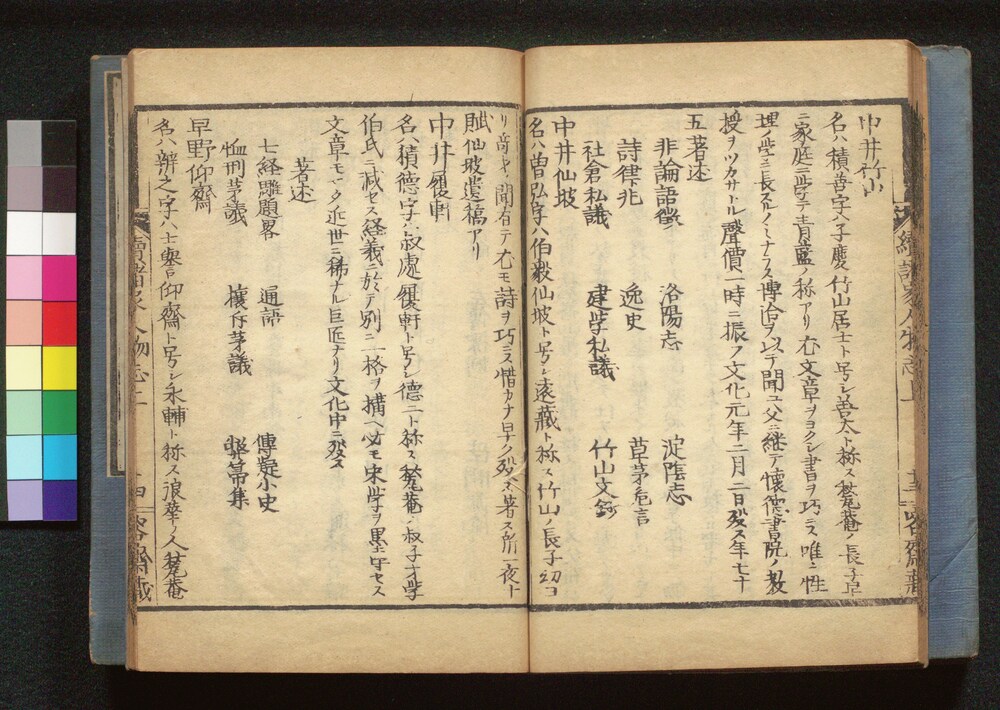 中井竹山
名ハ積善字ハ子慶竹山居士ト号シ善太ト称ス甃菴ノ長子早
ニ家庭ニ学テ青藍ノ称アリ尤文章ヲヨクシ書ヲ巧ニス唯性
理ノ学ニ長スルノミナラス博洽ヲ以テ聞ユ父ニ継テ懐徳書院ノ教
授ヲツカサトル聲價一時ニ振フ文化元年二月二日歿ス年七十
五著述
非論語徴 洛陽志 淀陰志
詩律兆 逸史 草茅危言
社倉私議 建学私議 竹山文鈔
中井仙坡
名ハ曽弘字ハ伯毅仙坡ト号シ遠藏ト称ス竹山ノ長子幼ヨ
リ奇才ノ聞有テ尤モ詩ヲ巧ニス惜カナ早ク歿ス著ス所一夜十
賦仙坡遺稿アリ
中井履軒
名ハ積德字ハ叔處履軒ト号シ德二ト称ス甃菴ノ叔子才学
伯氏ニ減セス経義ニ於テ別ニ一格ヲ構ヘ必モ宋学ヲ墨守セス
文章モマタ近世ニ稀ナル巨匠ナリ文化中ニ歿ス
著述
七経雕題畧 通語 傳疑小史
恤刑茅議 攘斥茅議 弊帚集
早野仰齋
名ハ辨之字ハ士誉仰齋ト号シ永輔ト称ス浪華ノ人甃菴
續諸家人物志上 十三
續諸家人物志上 十四